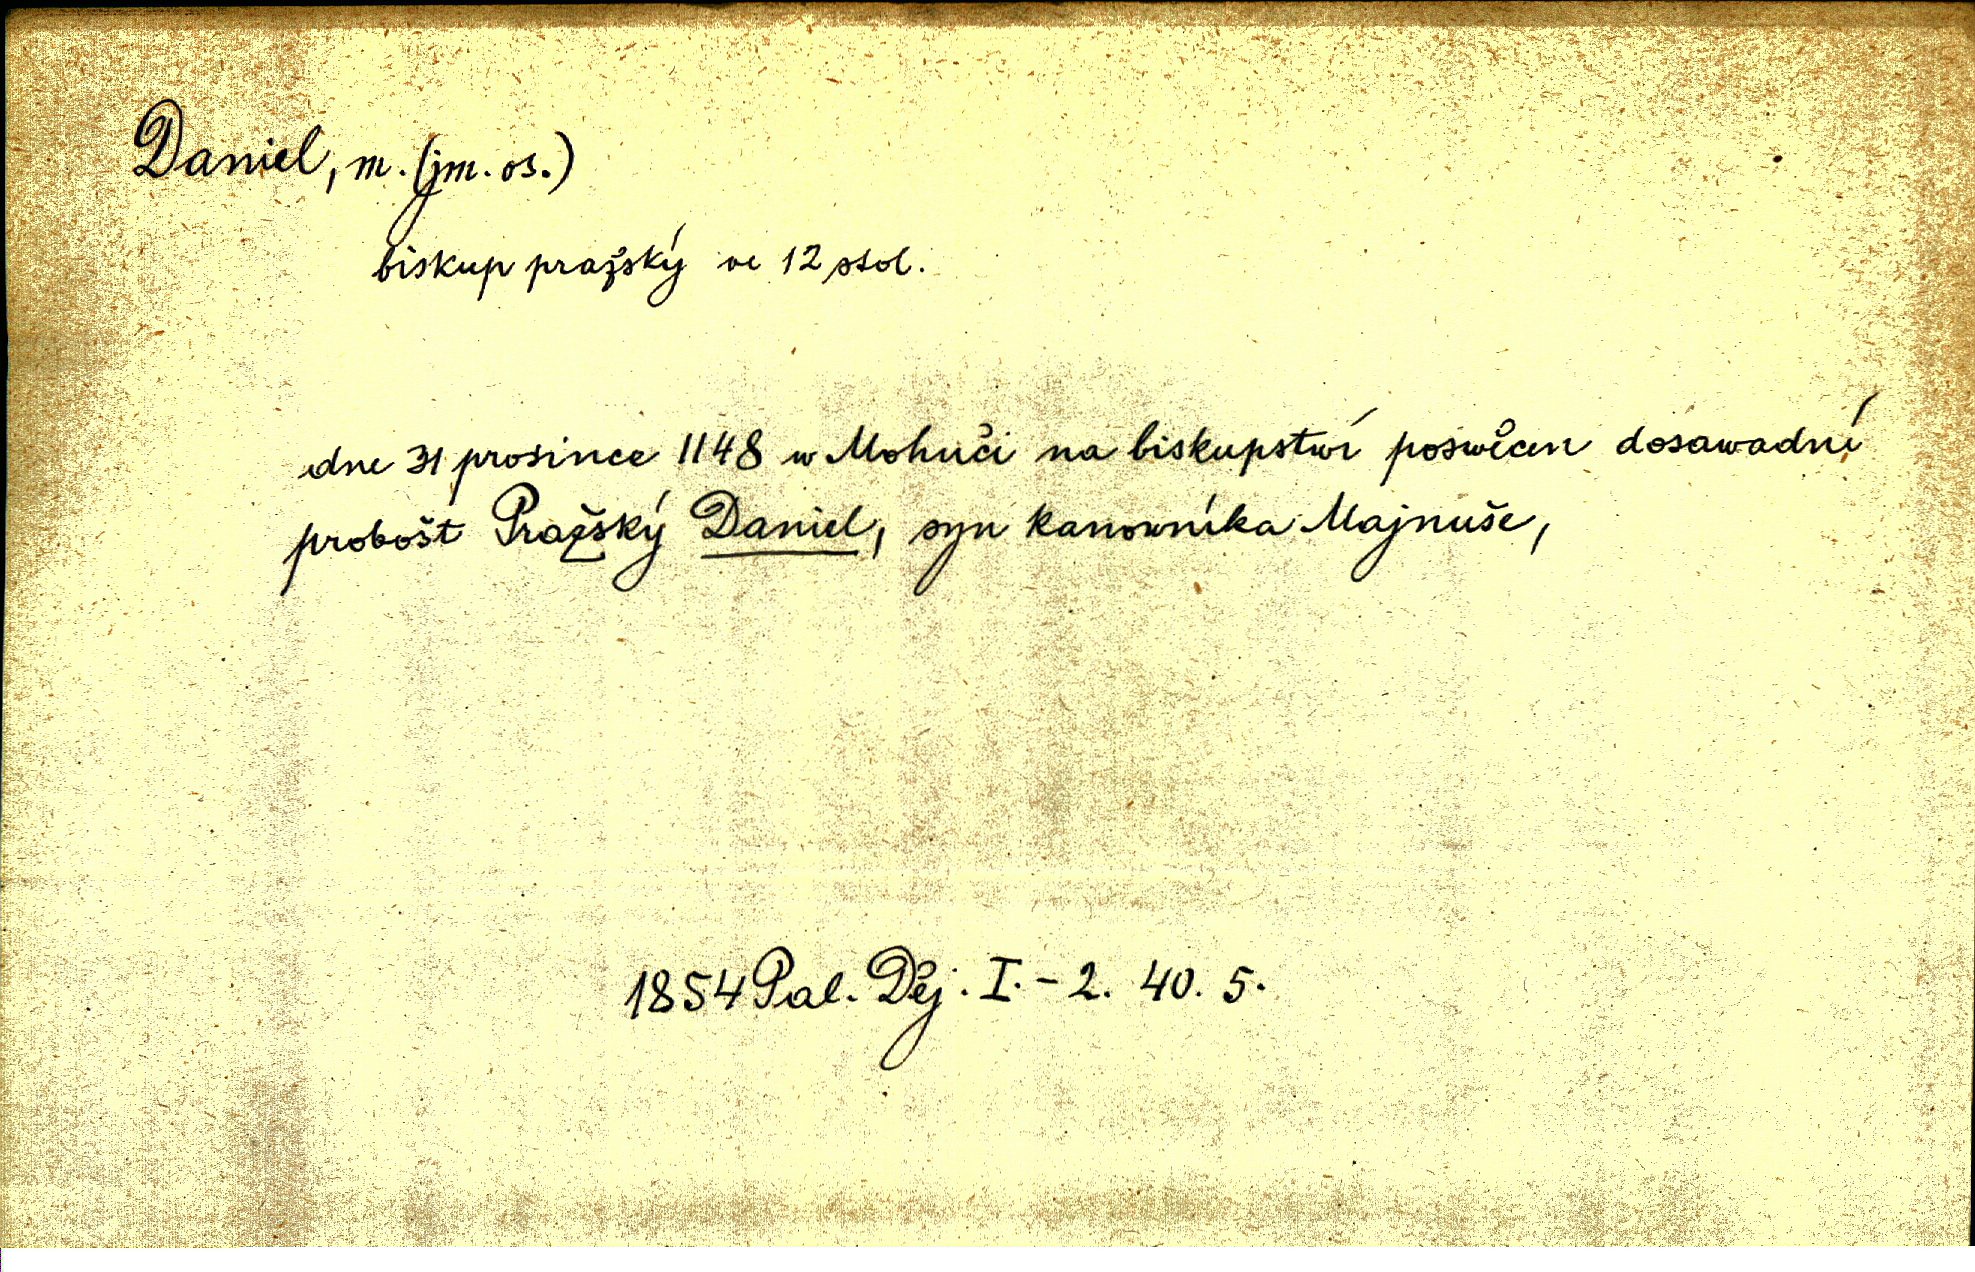 Daniel, m. (jm. os.)
biskup pražský ve 12 stol.
dne 31 prosince 1148 w Mohuči na biskupstwí poswěcen dosawadní
probošt Pražský Daniel, syn kanowníka Majnuše,
1854 Pal. Děj. I. - 2. 40. 5.